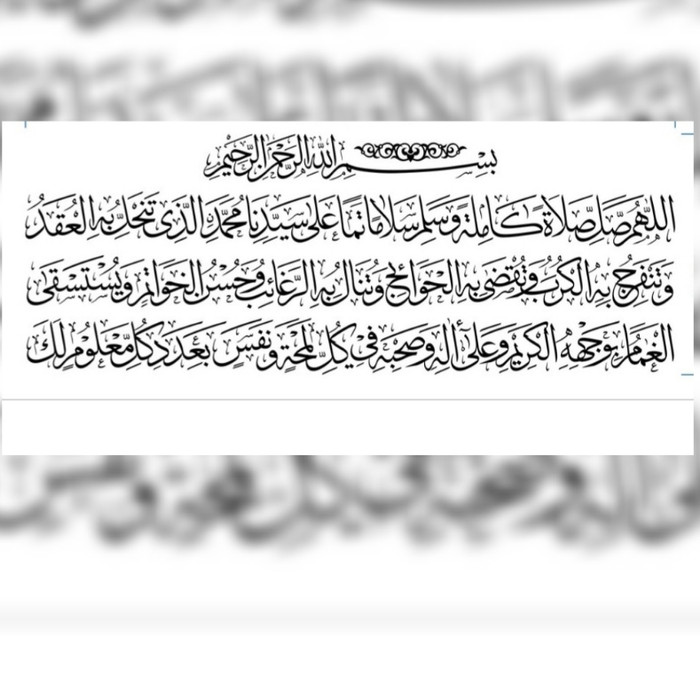 بِسْمِ اللهِ الرَّحْمٰنِ الرَّحِيْمِ
اَللّٰهُمَّ صَلِّ صَلَاةً كَامِلَةً وَسَلِّمْ سَلَامًا تَامًّا عَلٰى سَيِّدِنَا مُحَمَّدِ الَّذِى تَنْحَلُّ بِهِ الْعُقَدُ
وَتَنْفَرِجُ بِهِ الْكُرَبُ وَتُقْضٰى بِهِ الْحَوَائِجُ وَتُنَالُ بِهِ الرَّغَائِبُ وَحُسْنُ الْخَوَاتِمِ وَيُسْتَسْقَى
الْغَمَامُ بِوَجْهِهِ الْكَرِيْمِ وَعَلٰى اٰلِهِ وَصَحْبِهِ فِى كُلِّ لَمْحَةٍ وَنَفَسٍ بِعَدَدِ كُلِّ مَعْلُوْمٍ لَكَ